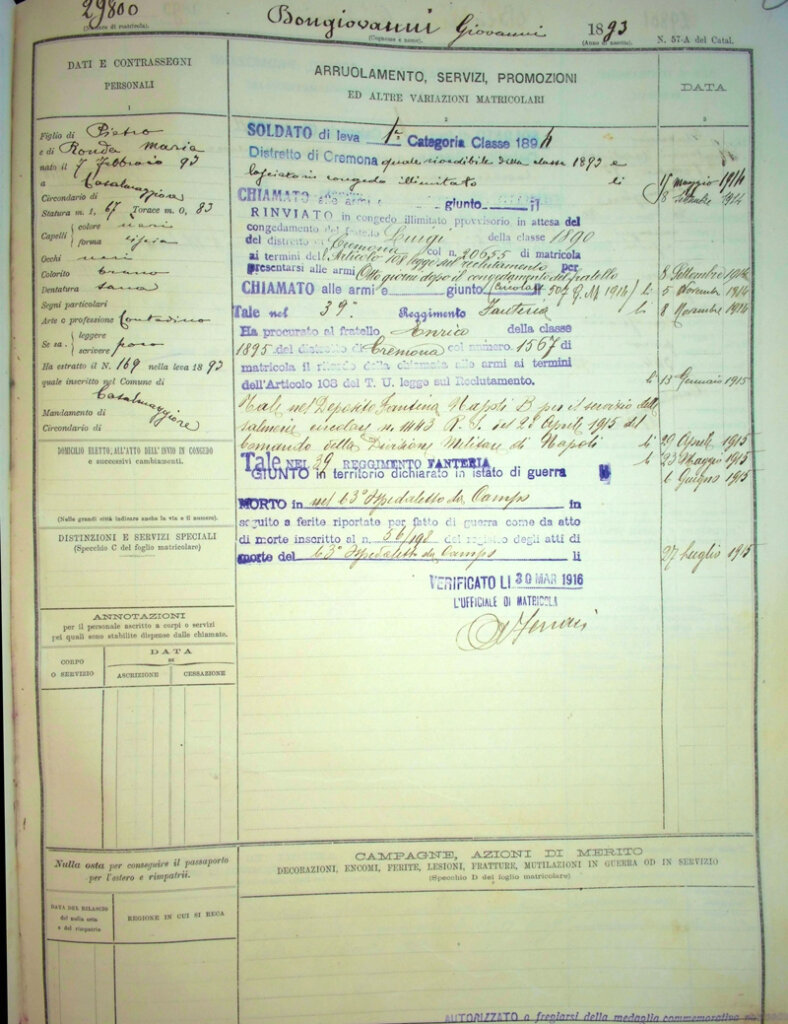 29800 Bongiovanni Giovanni 1893
(Numero di matricola). (Cognome e nome). (Anno di nascita). N. 57-A del Catal.
DATI E CONTRASSEGNI
PERSONALI
1
Figlio di Pietro
e di Ronda Maria
nato il 7 Febbraio 93
a Casalmaggiore
Circondario di
Statura m. 1, 67 Torace m. 0, 83
Capelli { colore neri
forma liscia
Occhi neri
Colorito bruno
Dentatura sana
Segni particolari
Arte o professione Contadino
Se sa { leggere
scrivere poco
Ha estratto il N. 169 nella leva 1893
quale inscritto nel Comune di
Casalmaggiore
Mandamento di
Circondario di
DOMICILIO ELETTO, ALL'ATTO DELL'INVIO IN CONGEDO
e successivi cambiamenti.
(Nelle grandi città indicare anche la via e il numero).
DISTINZIONI E SERVIZI SPECIALI
(Specchio C del foglio matricolare)
ANNOTAZIONI
per il personale ascritto a corpi o servizi
pei quali sono stabilite dispense dalle chiamate.
CORPO
O SERVIZIO
DATA
DI
ASCRIZIONE CESSAZIONE
Nulla osta per conseguire il passaporto
per l'estero e rimpatrii.
DATA DEL RILASCIO
del nulla osta
e del rimpatrio
REGIONE IN CUI SI RECA
ARRUOLAMENTO, SERVIZI, PROMOZIONI
ED ALTRE VARIAZIONI MATRICOLARI
2
DATA
3
SOLDATO di leva 1a Categoria Classe 1894
Distretto di Cremona quale rivedibile della classe 1893 e
lasciato in congedo illimitato li 15 maggio 1914
CHIAMATO alle armi e giunto li 8 Settembre 1914
RINVIATO in congedo illimitato provvisorio in attesa del
congedamento del fratello Luigi della classe 1890
del distretto di Cremona col n. 20655 di matricola
ai termini dell'Articolo 108 legge sul reclutamento per
presentarsi alle armi Otto giorni dopo il congedamento del fratello 8 Settembre 1914
CHIAMATO alle armi e giunto (Circolare 507 G. M. 1914) li 5 Novembre 1914
Tale nel 39° Reggimento Fanteria li 8 Novembre 1914
Ha procurato al fratello Enrico della classe
1895 del distretto di Cremona col numero 1567 di
matricola il ritardo della chiamata alle armi ai termini
dell'Articolo 108 del T. U. legge sul Reclutamento. li 13 Gennaio 1915
Tale nel Deposito Fanteria Napoli B per il servizio delle
salmerie circolare n. 1443 R. S. del 28 Aprile 1915 del
Comando della Divisione Militare di Napoli li 29 Aprile 1915
Tale NEL 39 REGGIMENTO FANTERIA li 23 Maggio 1915
GIUNTO in territorio dichiarato in istato di guerra li 6 Giugno 1915
MORTO in nel 63° Ospedaletto da Campo in
seguito a ferite riportate per fatto di guerra come da atto
di morte inscritto al n. 56/198 del registro degli atti di
morte del 63° Ospedaletto da Campo li 27 Luglio 1915
VERIFICATO LI 30 MAR 1916
L'UFFICIALE DI MATRICOLA
CAMPAGNE, AZIONI DI MERITO
DECORAZIONI, ENCOMI, FERITE, LESIONI, FRATTURE, MUTILAZIONI IN GUERRA OD IN SERVIZIO
(Specchio D del foglio matricolare)
AUTORIZZATO a fregiarsi della medaglia commemorativa